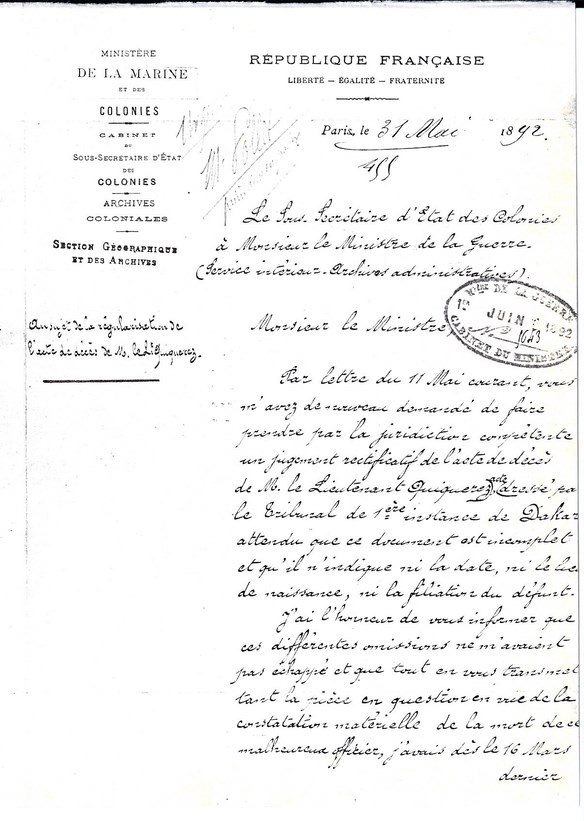 MINISTÈRE
DE LA MARINE
ET DES
COLONIES
CABINET
DU
SOUS-SECRETAIRE D'ÉTAT
DES
COLONIES
ARCHIVES
COLONIALES
SECTION GÉOGRAPHIQUE
ET DES ARCHIVES
RÉPUBLIQUE FRANÇAISE
LIBERTÉ – ÉGALITÉ – FRATERNITÉ
Paris, le 31 Mai 1892.
455
Le Sous Secrétaire d'Etat des Colonies
à Monsieur le Ministre de la Guerre.
(Service intérieur. Archives administratives).
Mtère DE LA GUERRE
JUIN 1892
1053
CABINET DU MINISTRE
Au sujet de la régularisation de
l'acte de décès de M. le Lt Quiquerez.
Monsieur le Ministre,
Par lettre du 11 Mai courant, vous
m'avez de nouveau demandé de faire
prendre par la juridiction compétente
un jugement rectificatif de l'acte de décès
de M. le Lieutenant Quiquerez, dressé pa
le Tribunal de 1ère instance de Dakar
attendu que ce document est incomplet
et qu'il n'indique ni la date, ni le lieu
de naissance, ni la filiation du défunt.
J'ai l'honneur de vous informer que
ces différentes omissions ne m'avaient
pas échappé et que tout en vous transmet
tant la pièce en question en vue de la
constatation matérielle de la mort de ce
malheureux officier, j'avais dès le 16 Mars
dernier